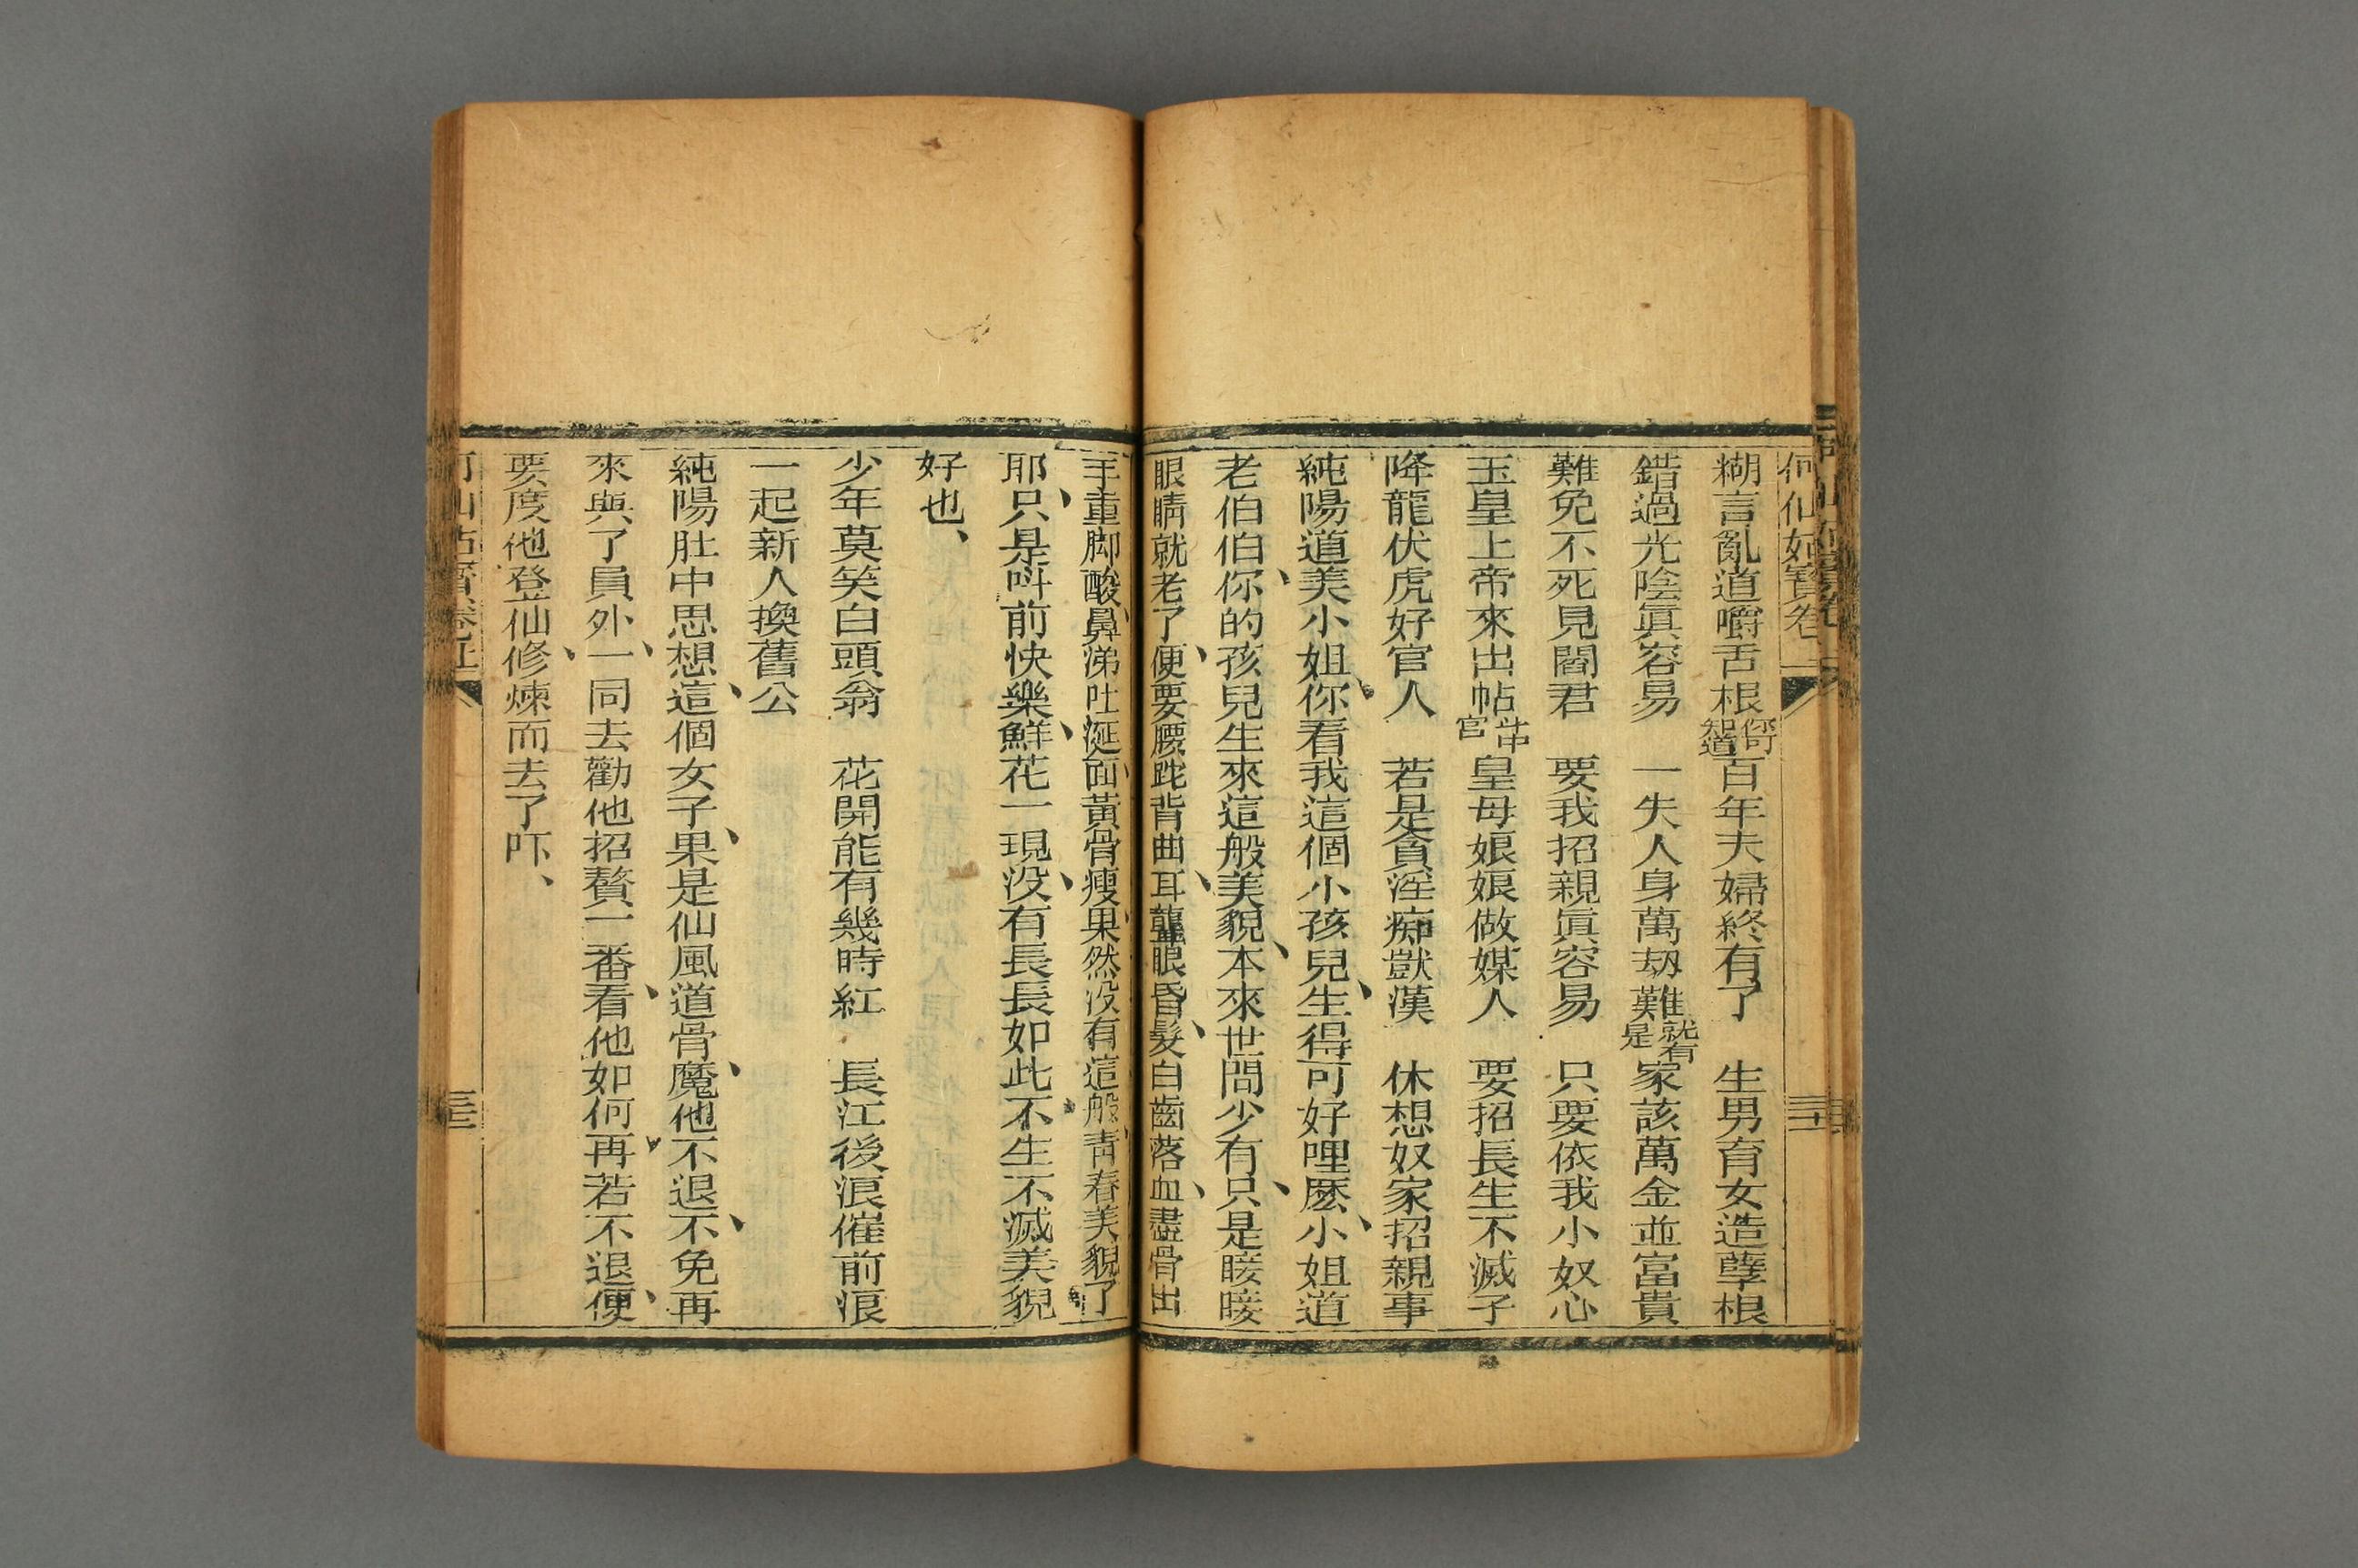 何仙姑寶卷
糊言亂道嚼舌根你可知道百年夫婦終有了　生男育女造孽根
錯過光陰眞容易　一失人身萬刼難就是有家該萬金並富貴
難免不死見閻君　要我招親眞容易　只要依我小奴心
玉皇上帝來出帖斗中宮皇母娘娘做媒人　要招長生不滅子
降龍伏虎好官人　若是貪淫痴獃漢　休想奴家招親事
純陽道美小姐、你看我這個小孩兒、生得可好哩麽、小姐道
老伯伯、你的孩兒生來這般美貌、本來世間少有、只是睫睫
眼睛就老了、便要腰跎背曲、耳聾眼昏、髮白齒落、血盡骨出
手重脚酸、鼻涕吐涎、面黃骨瘦、果然沒有這般、靑春美貌了
耶、只是呌前快樂、鮮花一現、没有長長如此、不生不滅美貌
好也、
少年莫笑白頭翁　花開能有幾時紅　長江後浪催前浪
一起新人換舊公
純陽肚中思想、這個女子、果是仙風道骨、魔他不退、不免再
來與了員外、一同去勸他招贅一番、看他如何、再若不退、便
要度他登仙、修煉而去了吓、
三二